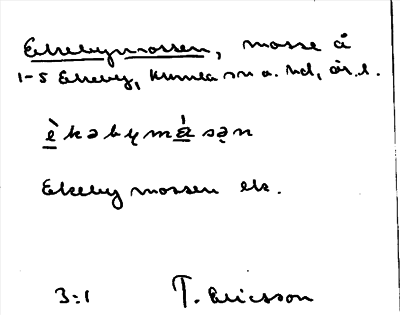 Ekebymossen, mosse å
1-5 Ekeby, Kumla sn o. hd, ör. l.
è̲kəbym á̲sən
Ekebymossen ek.
3:1 T. Ericsson